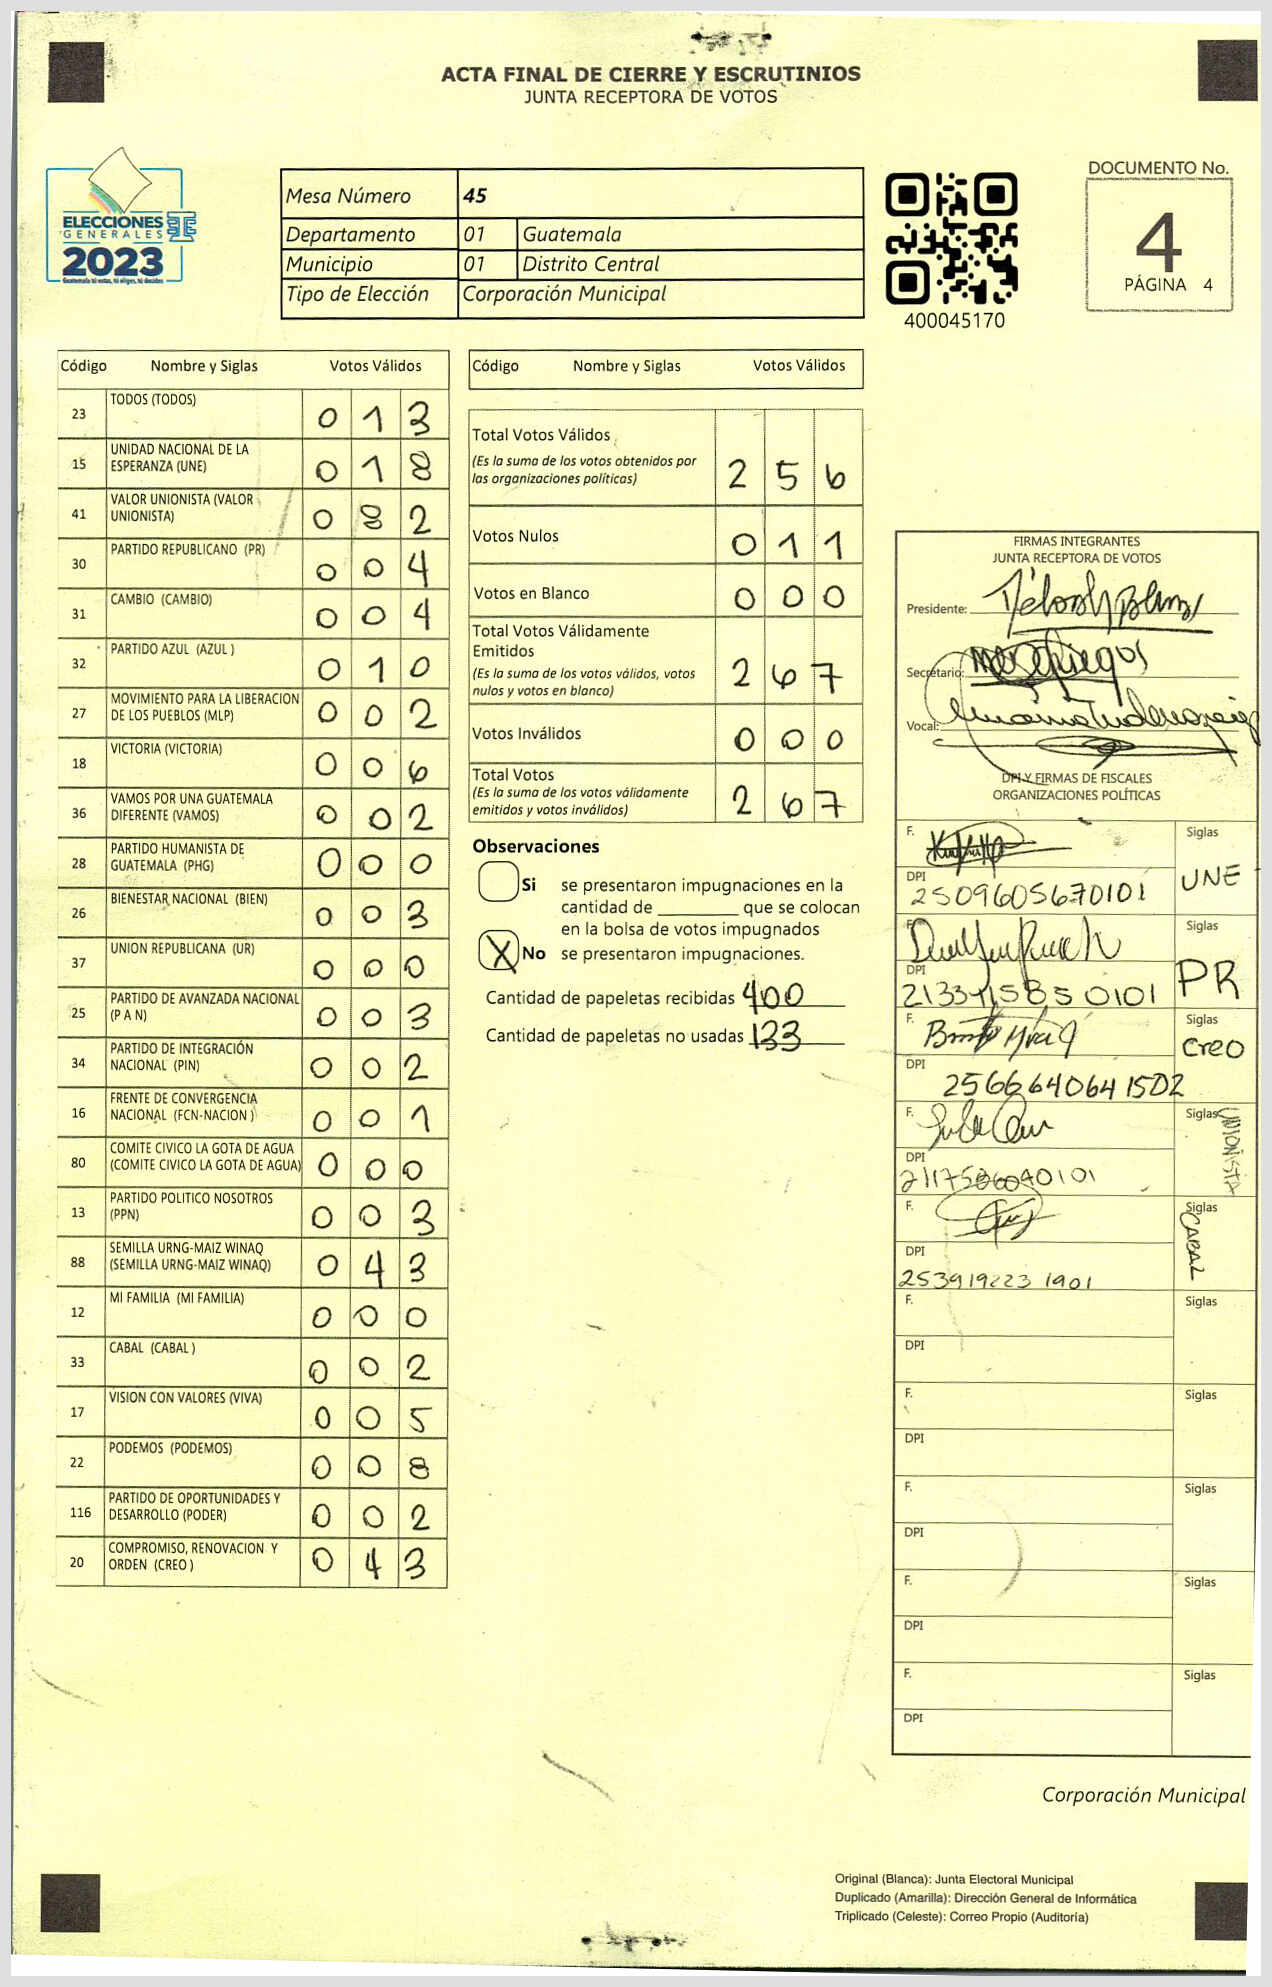 ACTA FINAL DE CIERRE Y ESCRUTINIOS
JUNTA RECEPTORA DE VOTOS
ELECCIONES
GENERALES
2023
Guatemala tú estas, tú eliges, tú decides
Mesa Número 45
Departamento 01 Guatemala
Municipio 01 Distrito Central
Tipo de Elección Corporación Municipal
400045170
DOCUMENTO No.
4
PÁGINA 4
Código Nombre y Siglas Votos Válidos
23 TODOS (TODOS) 0 1 3
15 UNIDAD NACIONAL DE LA
ESPERANZA (UNE) 0 1 8
41 VALOR UNIONISTA (VALOR
UNIONISTA) 0 8 2
30 PARTIDO REPUBLICANO (PR) 0 0 4
31 CAMBIO (CAMBIO) 0 0 4
32 PARTIDO AZUL (AZUL ) 0 1 0
27 MOVIMIENTO PARA LA LIBERACION
DE LOS PUEBLOS (MLP) 0 0 2
18 VICTORIA (VICTORIA) 0 0 6
36 VAMOS POR UNA GUATEMALA
DIFERENTE (VAMOS) 0 0 2
28 PARTIDO HUMANISTA DE
GUATEMALA (PHG) 0 0 0
26 BIENESTAR NACIONAL (BIEN) 0 0 3
37 UNION REPUBLICANA (UR) 0 0 0
25 PARTIDO DE AVANZADA NACIONAL
(P A N) 0 0 3
34 PARTIDO DE INTEGRACIÓN
NACIONAL (PIN) 0 0 2
16 FRENTE DE CONVERGENCIA
NACIONAL (FCN-NACION ) 0 0 1
80 COMITE CIVICO LA GOTA DE AGUA
(COMITE CIVICO LA GOTA DE AGUA) 0 0 0
13 PARTIDO POLITICO NOSOTROS
(PPN) 0 0 3
88 SEMILLA URNG-MAIZ WINAQ
(SEMILLA URNG-MAIZ WINAQ) 0 4 3
12 MI FAMILIA (MI FAMILIA) 0 0 0
33 CABAL (CABAL ) 0 0 2
17 VISION CON VALORES (VIVA) 0 0 5
22 PODEMOS (PODEMOS) 0 0 8
116 PARTIDO DE OPORTUNIDADES Y
DESARROLLO (PODER) 0 0 2
20 COMPROMISO, RENOVACION Y
ORDEN (CREO ) 0 4 3
Código Nombre y Siglas Votos Válidos
Total Votos Válidos
(Es la suma de los votos obtenidos por
las organizaciones políticas) 2 5 6
Votos Nulos 0 1 1
Votos en Blanco 0 0 0
Total Votos Válidamente
Emitidos
(Es la suma de los votos válidos, votos
nulos y votos en blanco) 2 6 7
Votos Inválidos 0 0 0
Total Votos
(Es la suma de los votos válidamente
emitidos y votos inválidos) 2 6 7
Observaciones
Si se presentaron impugnaciones en la
cantidad de ________ que se colocan
en la bolsa de votos impugnados
X No se presentaron impugnaciones.
Cantidad de papeletas recibidas 400
Cantidad de papeletas no usadas 133
FIRMAS INTEGRANTES
JUNTA RECEPTORA DE VOTOS
Presidente:
Secretario:
Vocal:
DPI Y FIRMAS DE FISCALES
ORGANIZACIONES POLÍTICAS
F. Siglas
UNE
DPI
2509605670101
F. Siglas
PR
DPI
F. Siglas
Creo
DPI
2566640641502
F. Siglas
UNIONISTA
DPI
F. Siglas
CABAL
DPI
F. Siglas
DPI
F. Siglas
DPI
F. Siglas
DPI
F. Siglas
DPI
F. Siglas
DPI
Corporación Municipal
Original (Blanca): Junta Electoral Municipal
Duplicado (Amarilla): Dirección General de Informática
Triplicado (Celeste): Correo Propio (Auditoría)